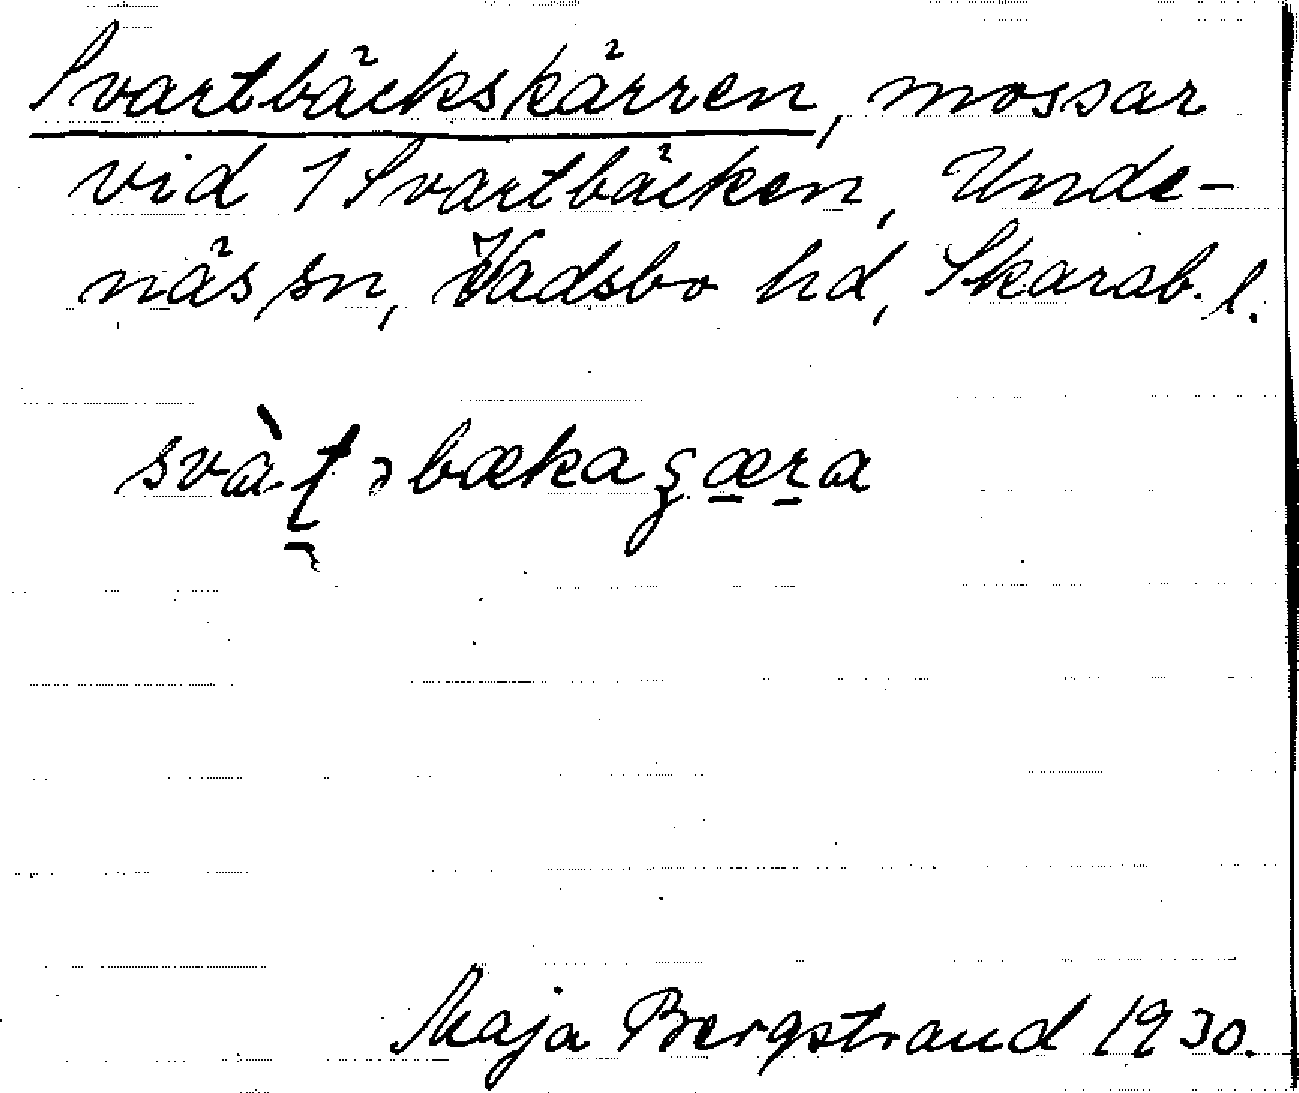 Svartbäckskärren, mossar
vid 1 Svartbäcken, Unde-
näs sn, Vadsbo hd, Skarab. l.
svàṭəbækaʂæra
Maja Bergstrand 1930.